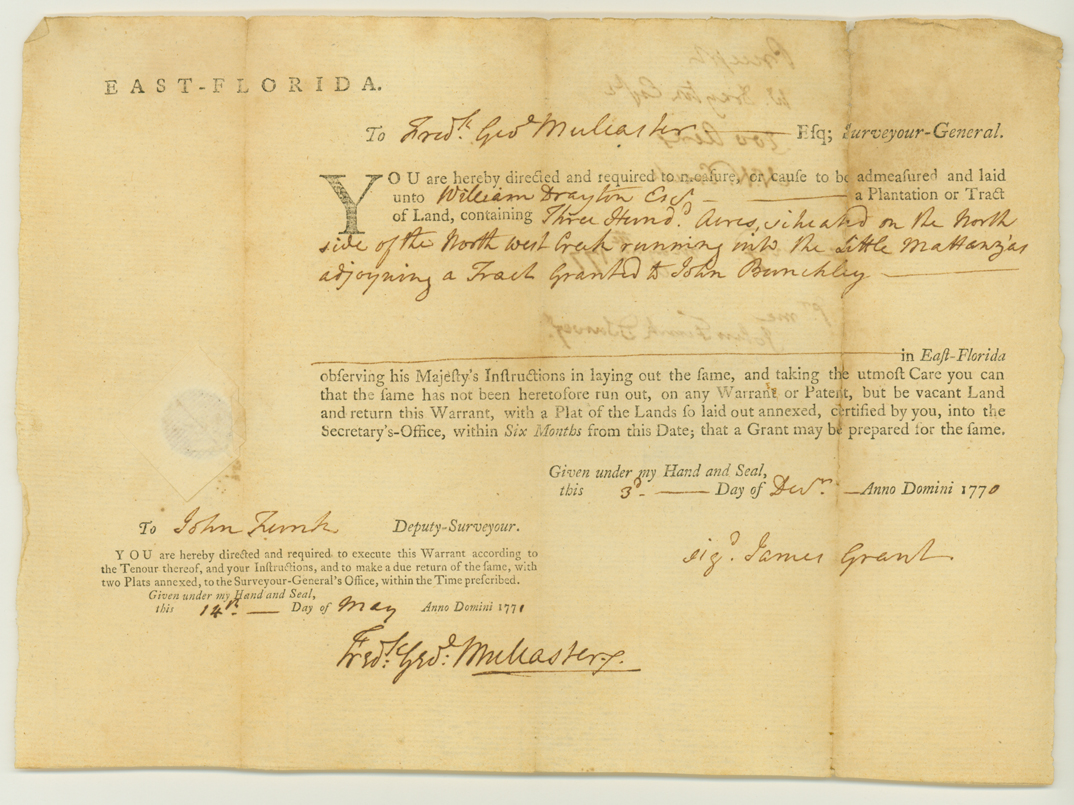 EAST-FLORIDA.
To Fredk. Geoe. Mulcaster Esq; Surveyour-General.
YOU are hereby directed and required to measure, or cause to be admeasured and laid
unto William Drayton Esqr. a Plantation or Tract
of Land, containing Three Hundd. Acres, situated on the North
side of the North west Creek running into the Little Mattanzas
adjoyning a Tract Granted to John Bunchley
in East-Florida
observing his Majesty's Instructions in laying out the same, and taking the utmost Care you can
that the same has not been heretofore run out, on any Warrant or Patent, but be vacant Land
and return this Warrant, with a Plat of the Lands so laid out annexed, certified by you, into the
Secretary's-Office, within Six Months from this Date; that a Grant may be prepared for the same.
Given under my Hand and Seal,
this 3d. Day of Decr. Anno Domini 1770
sigd. James Grant
To John Funk Deputy-Surveyour.
YOU are hereby directed and required to execute this Warrant according to
the Tenour thereof, and your Instructions, and to make a due return of the same, with
two Plats annexed, to the Surveyour-General's Office, within the Time prescribed.
Given under my Hand and Seal,
this 14th. Day of May Anno Domini 1771
Fredk: Geoe: Mulcaster.